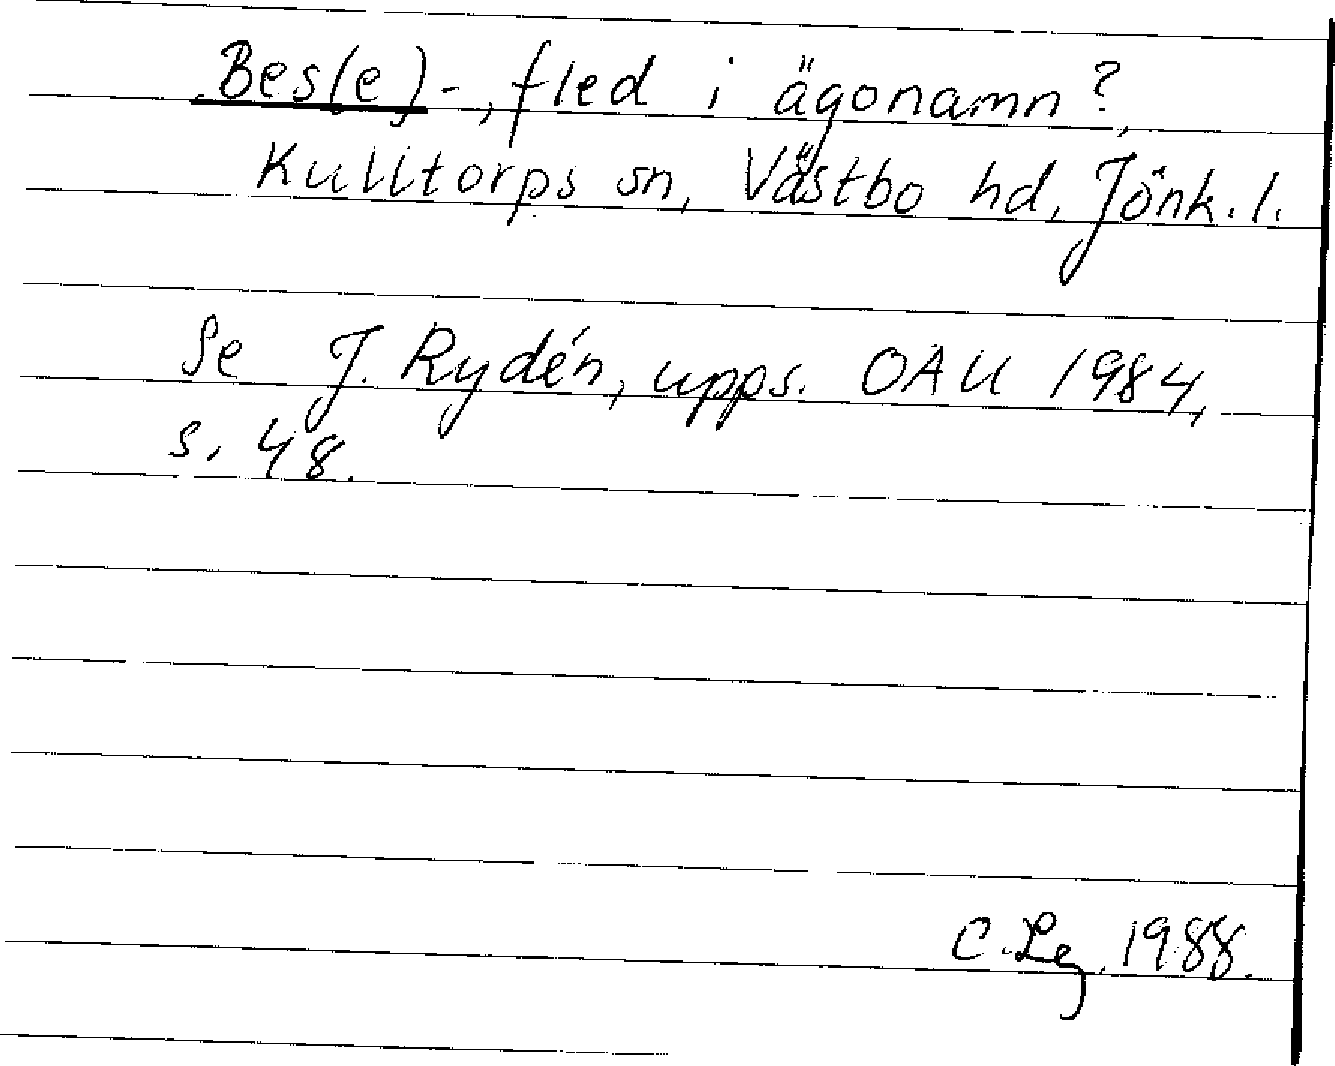 Bes(e)-, fled i ägonamn?
Kulltorps sn, Västbo hd, Jönk. l.
Se J. Rydén, upps. OAU 1984,
s. 48.
C. Lej. 1988.